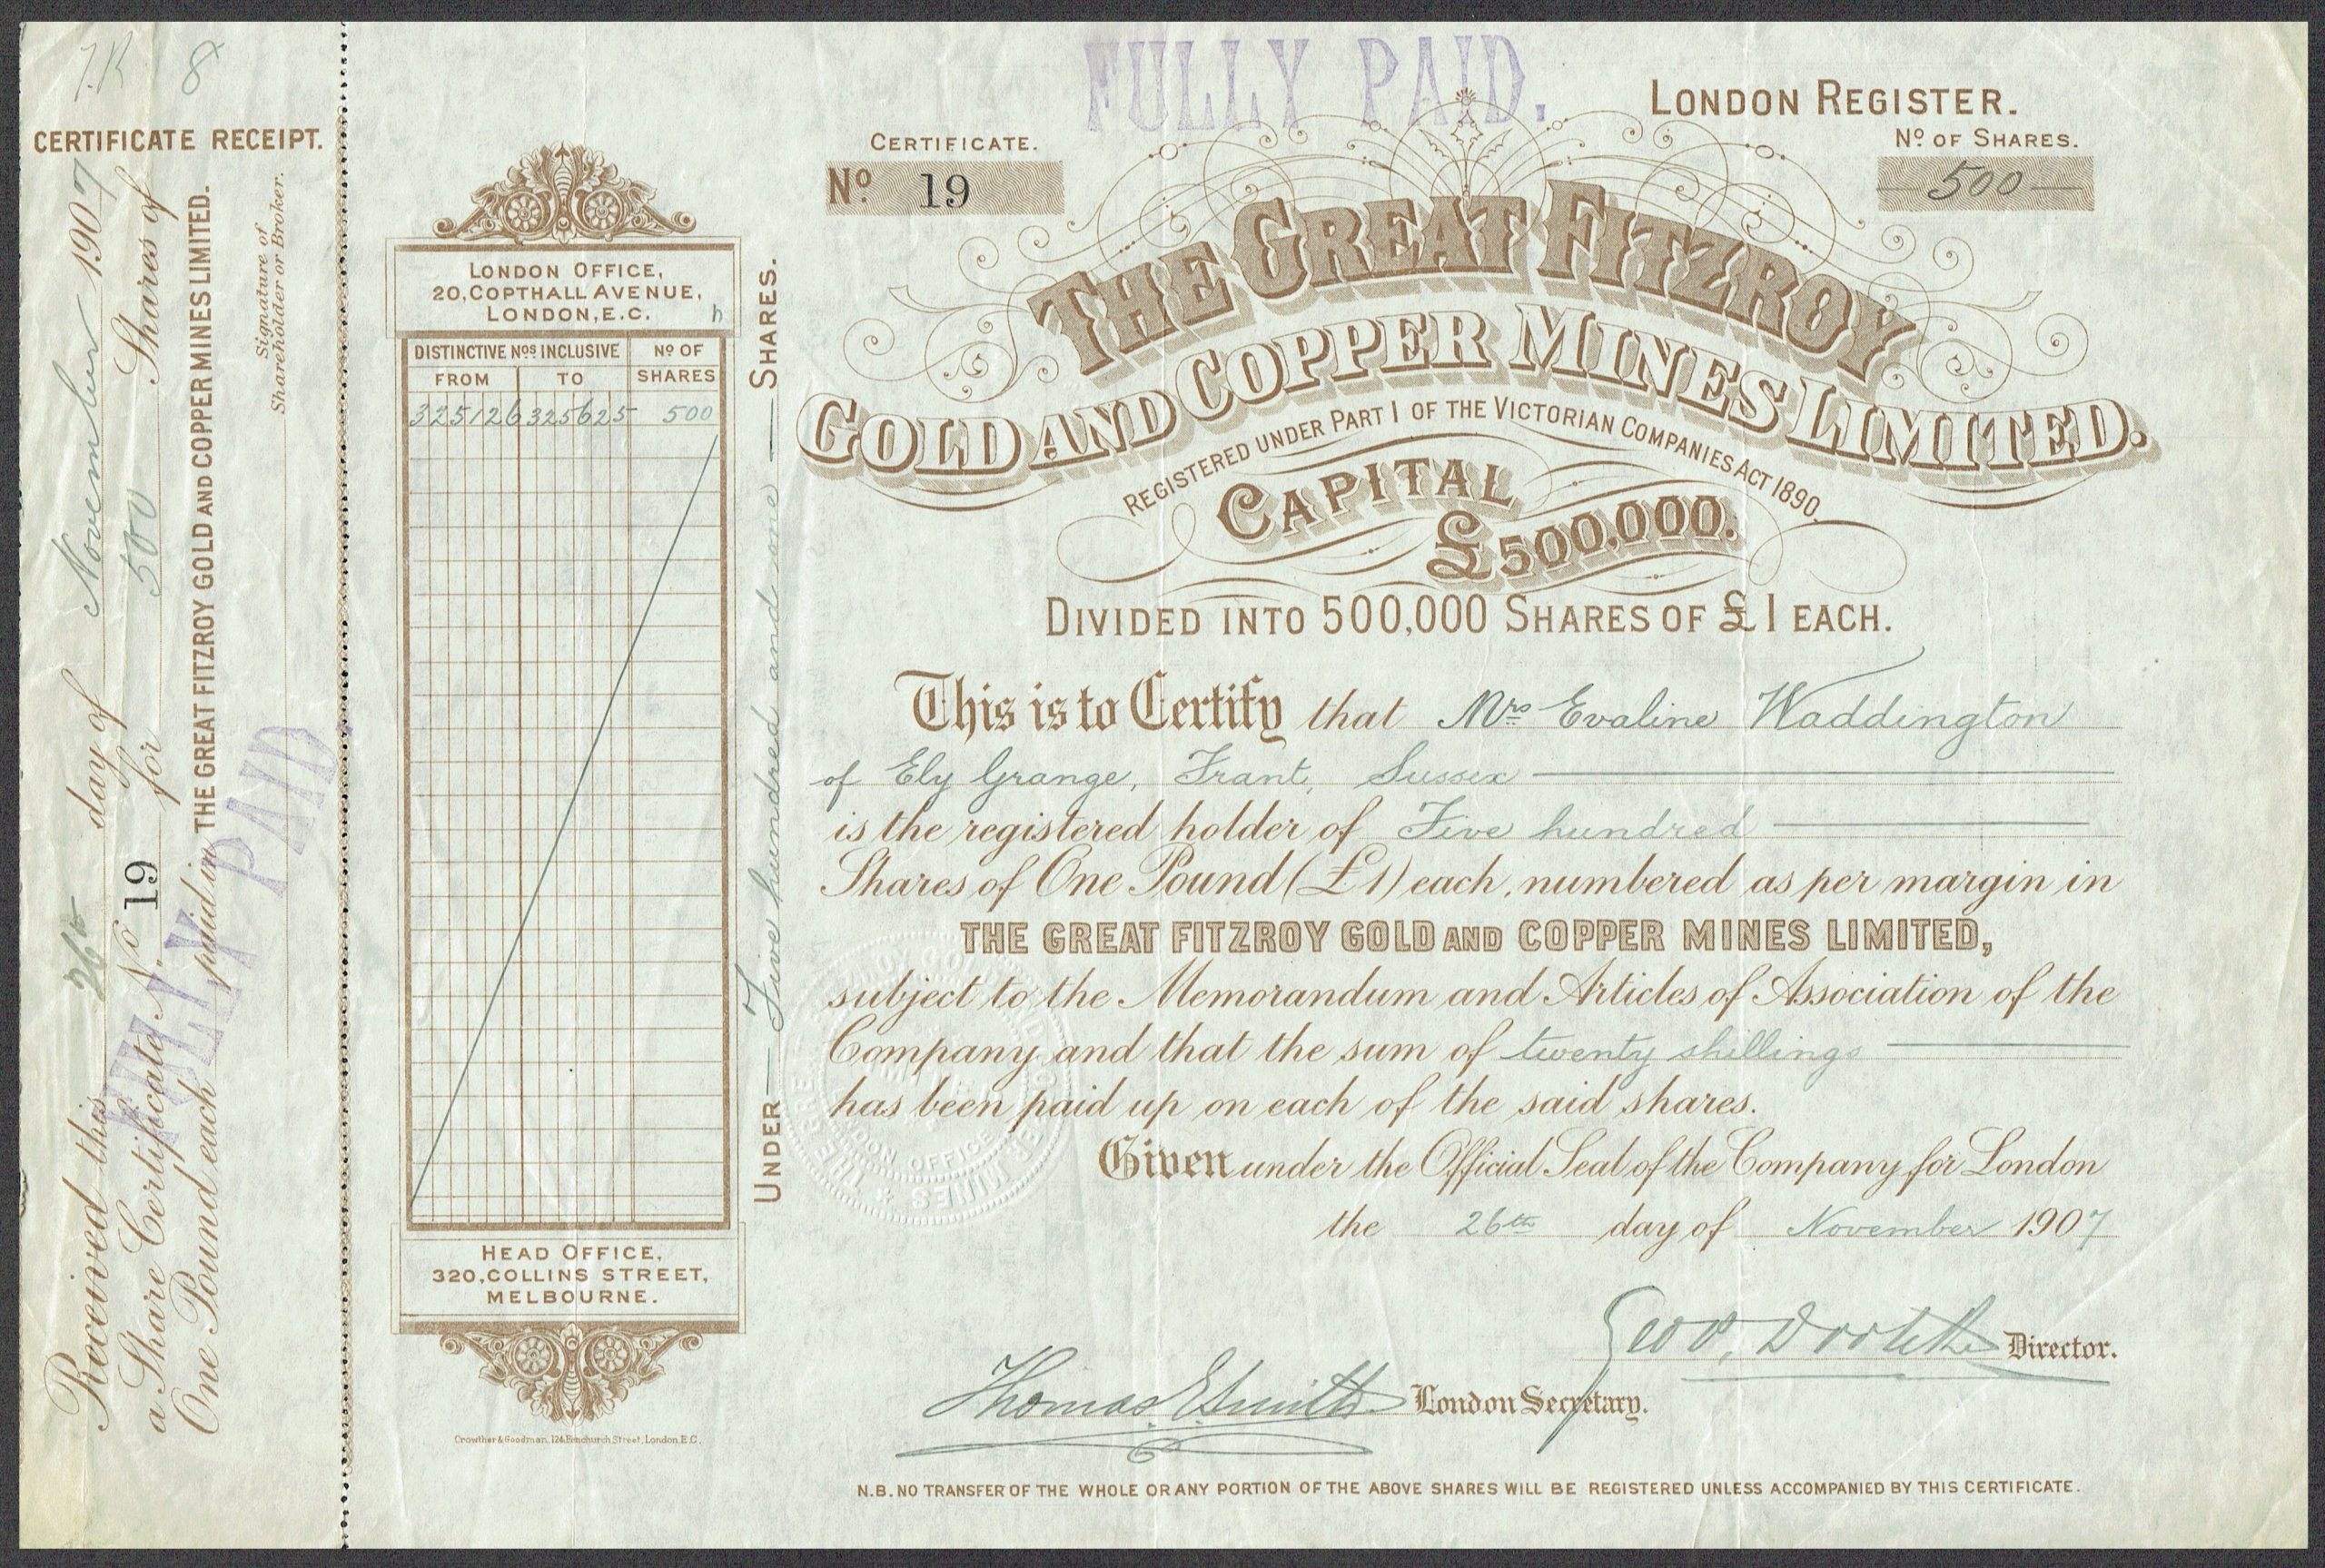 7.R 8
CERTIFICATE RECEIPT.
Received this 26th day of November 1907
a Share Certificate No. 19 for 500 Shares of
One Pound each paid in THE GREAT FITZROY GOLD AND COPPER MINES LIMITED.
FULLY PAID.
Signature of
Shareholder or Broker.
LONDON OFFICE,
20, COPTHALL AVENUE,
LONDON, E.C.
h
DISTINCTIVE Nos INCLUSIVE No OF
FROM TO SHARES
325126 325625 500
HEAD OFFICE,
320, COLLINS STREET,
MELBOURNE.
Crowther & Goodman, 124 Fenchurch Street, London, E.C.
UNDER Five hundred and one SHARES.
FULLY PAID.
LONDON REGISTER.
CERTIFICATE.
No OF SHARES.
No. 19
500
THE GREAT FITZROY
GOLD AND COPPER MINES LIMITED.
REGISTERED UNDER PART I OF THE VICTORIAN COMPANIES ACT 1890.
CAPITAL
£500,000.
DIVIDED INTO 500,000 SHARES OF £1 EACH.
This is to Certify that Mrs Evaline Waddington
of Ely Grange, Frant, Sussex
is the registered holder of Five hundred
Shares of One Pound (£1) each, numbered as per margin in
THE GREAT FITZROY GOLD AND COPPER MINES LIMITED,
subject to the Memorandum and Articles of Association of the
Company and that the sum of twenty shillings
has been paid up on each of the said shares.
Given under the Official Seal of the Company for London
the 26th day of November 1907
Director.
Thomas E Smith London Secretary.
N.B. NO TRANSFER OF THE WHOLE OR ANY PORTION OF THE ABOVE SHARES WILL BE REGISTERED UNLESS ACCOMPANIED BY THIS CERTIFICATE.